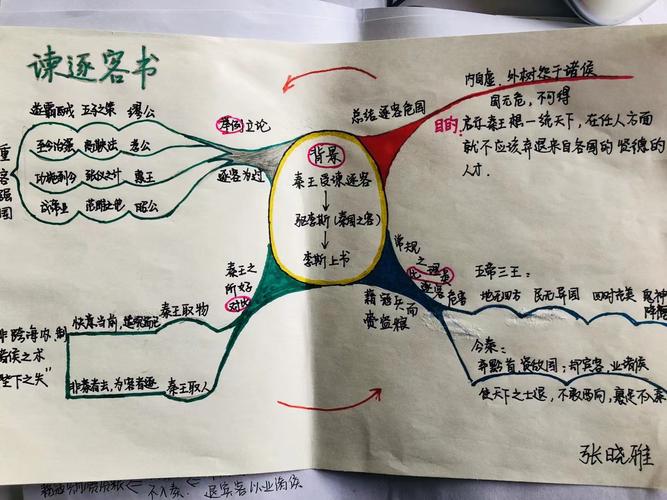 谏逐客书
重客强国
遂霸西戎 五子之策 缪公
至今治强 商鞅法 孝公
功施到今 张仪之计 惠王
成帝业 范雎之 昭公
举例立论
逐客为过
背景
秦王臣谏逐客
驱李斯(秦国之客)
李斯上书
总结逐客危国
内自虚,外树怨于诸侯
国无危,不可得
目的:启示秦王想一统天下,在任人方面
就不应该弃退来自各国的贤德的
人才.
秦王之
所好
对比
秦王取物
快意当前,适观而已
秦王取人
非秦者去,为客者逐
非跨海内,制
诸侯之术
陛下之失”
常规
之理
逐客危害
藉寇兵而
赍盗粮
五帝三王:
地无四方 民无异国 四时充美 鬼神
降福
今秦:
弃黔首,资敌国;却宾客,业诸侯
使天下之士退,不敢西向,裹足不入秦
张晓雅
不入秦.
退宾客以业诸侯